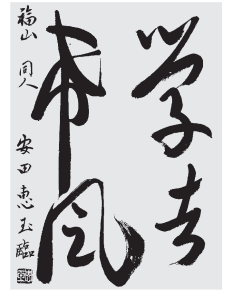 学古
希风
福山 同人 安田恵玉臨